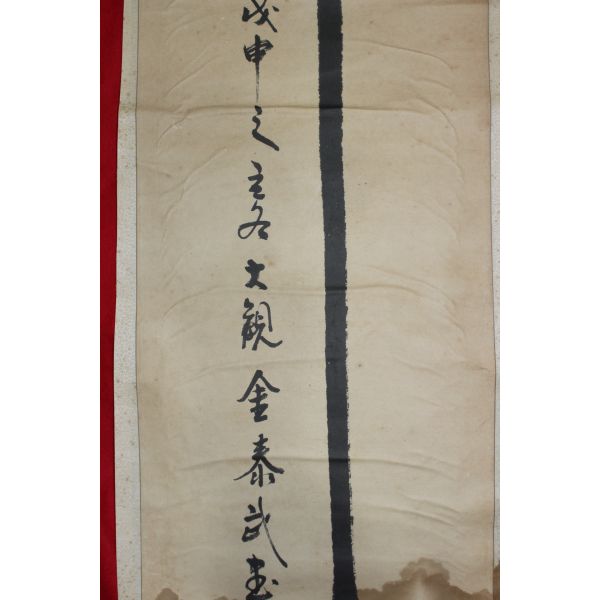 戊申之立冬大觀金泰武